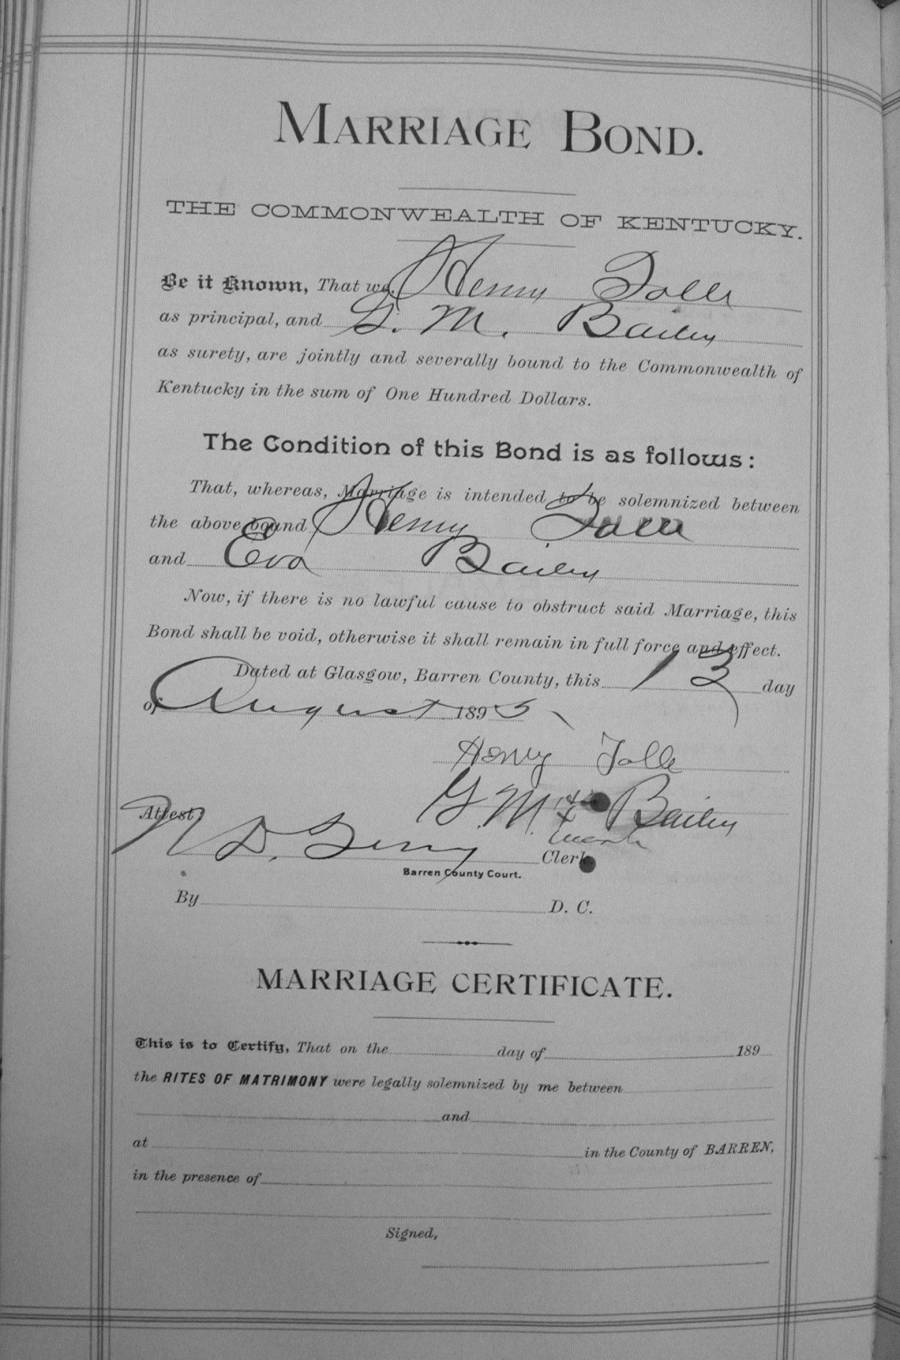 MARRIAGE BOND.
THE COMMONWEALTH OF KENTUCKY.
Be it Known, That we, Henry Tolle
as principal, and G. M. Bailey
as surety, are jointly and severally bound to the Commonwealth of
Kentucky in the sum of One Hundred Dollars.
The Condition of this Bond is as follows:
That, whereas, Marriage is intended to be solemnized between
the above bound Henry Tolle
and Eva Bailey
Now, if there is no lawful cause to obstruct said Marriage, this
Bond shall be void, otherwise it shall remain in full force and effect.
Dated at Glasgow, Barren County, this 13 day
of August 1895
Henry Tolle
G. M. his Bailey
mark
Attest:
Clerk
Barren County Court.
By D. C.
MARRIAGE CERTIFICATE.
This is to Certify, That on the day of 189
the RITES OF MATRIMONY were legally solemnized by me between
and
at in the County of BARREN,
in the presence of
Signed,